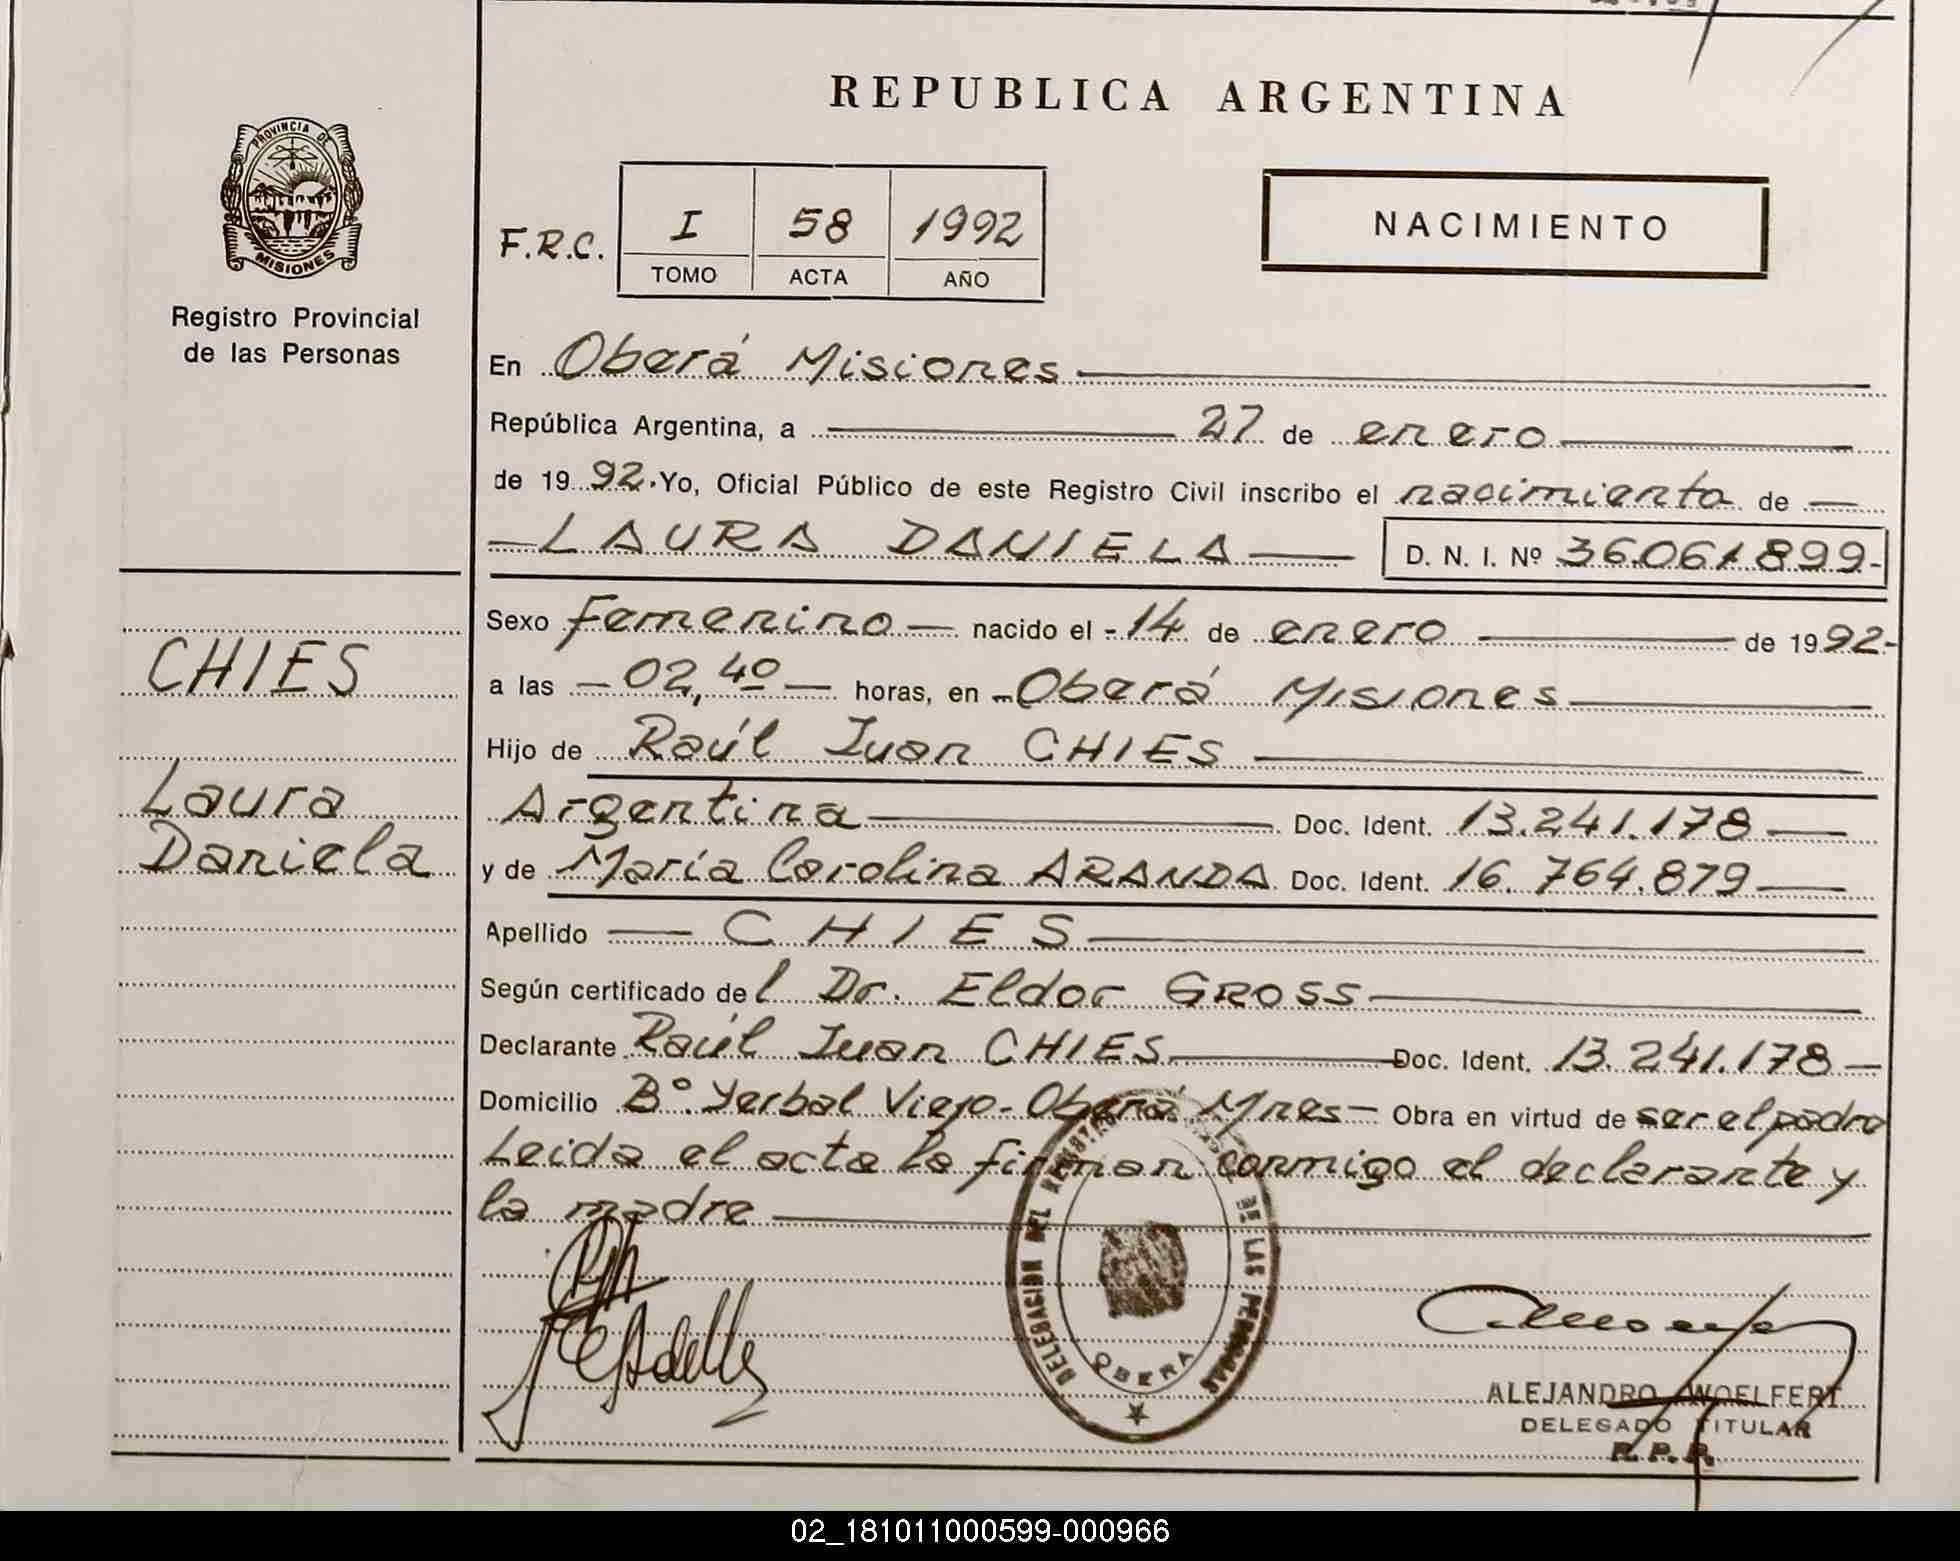 REPUBLICA ARGENTINA
PROVINCIA DE
MISIONES
Registro Provincial
de las Personas
F.R.C.
I 58 1992
TOMO ACTA AÑO
NACIMIENTO
En Oberá Misiones
República Argentina, a 27 de enero
de 1992. Yo, Oficial Público de este Registro Civil inscribo el nacimiento de
LAURA DANIELA D. N. I. Nº 36.061.899-
Sexo Femenino nacido el 14 de enero de 1992-
a las 02,40 horas, en Oberá Misiones
Hijo de Raúl Juan CHIES
Argentina Doc. Ident. 13.241.178
y de María Carolina ARANDA Doc. Ident. 16.764.879
Apellido CHIES
Según certificado del Dr. Eldor GROSS
Declarante Raúl Juan CHIES Doc. Ident. 13.241.178
Domicilio Bº. Yerbal Viejo-Oberá Mnes- Obra en virtud de ser el padre
Leida el acta la firman conmigo el declarante y
la madre
CHIES
Laura
Daniela
DELEGACION DEL REGISTRO DE LAS PERSONAS
OBERA
ALEJANDRO WOELFERT
DELEGADO TITULAR
R.P.P.
02_181011000599-000966